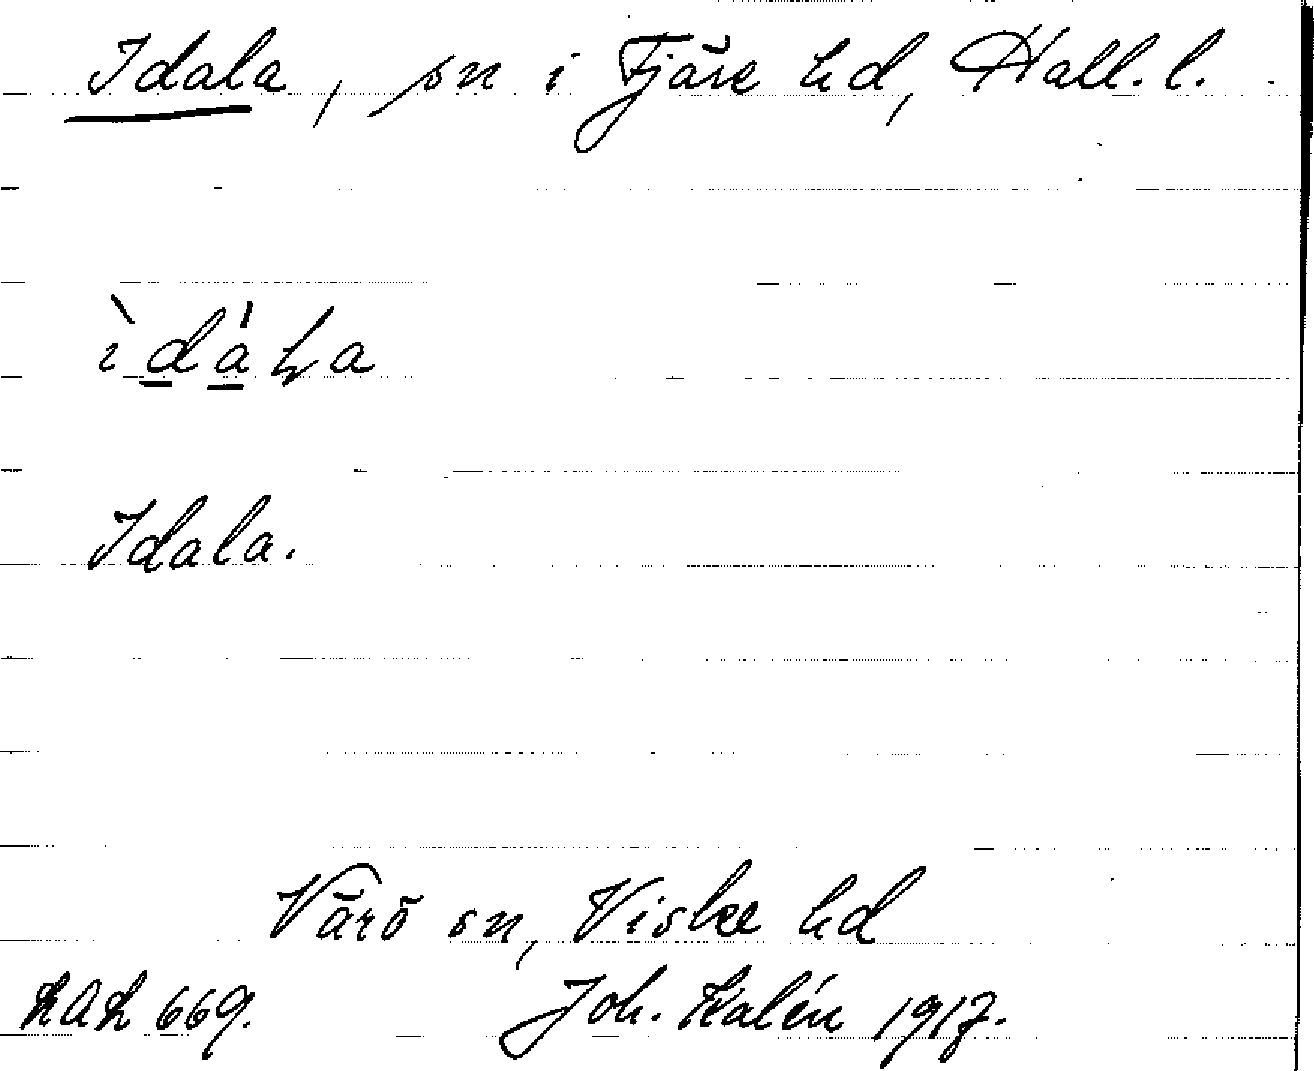 Idala, sn i Fjäre hd, Hall. l.
Idala.
Värö sn, Viske hd
LAL 669. Joh. Kalén 1917.